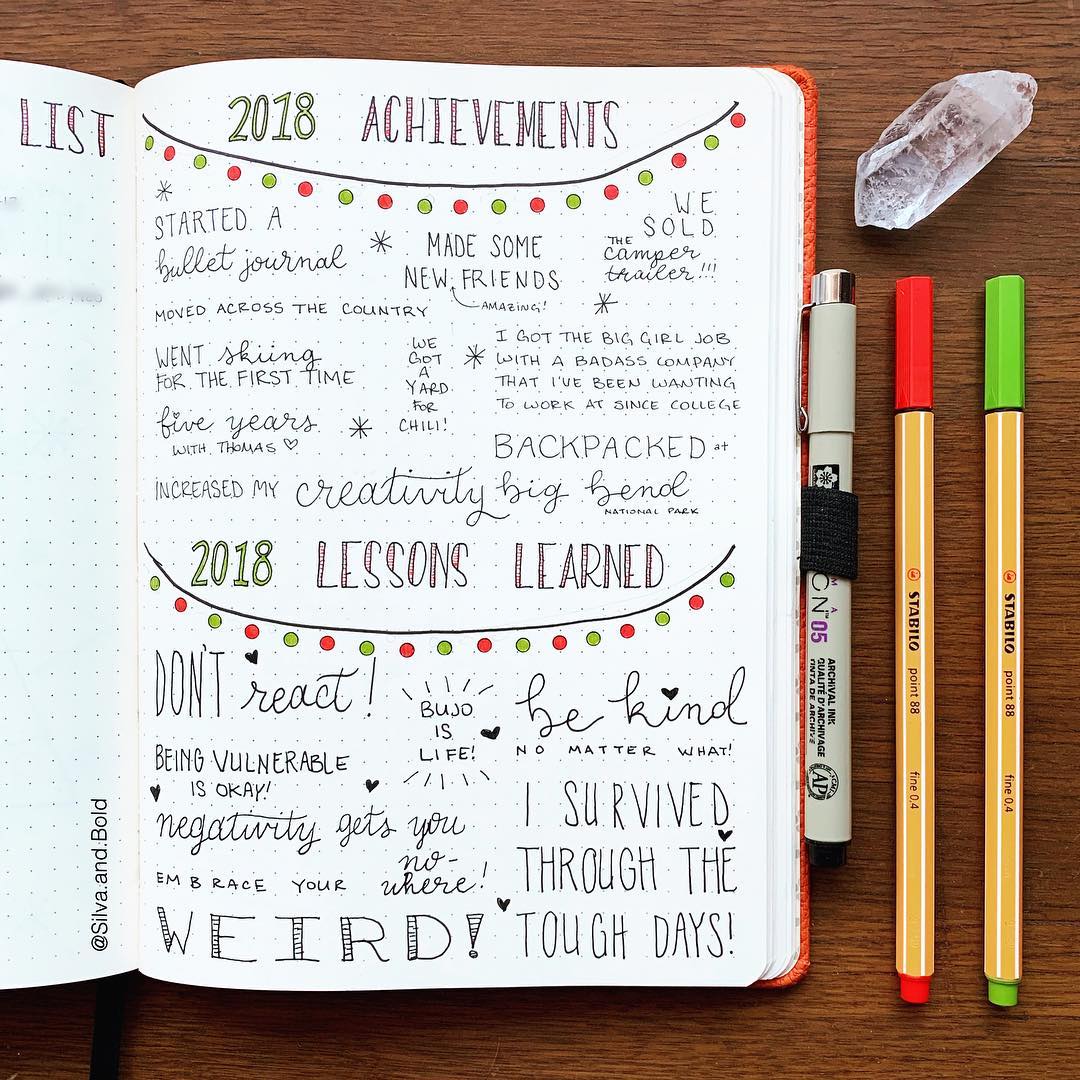 LIST
2018 ACHIEVEMENTS
STARTED A
bullet journal
MADE SOME
NEW FRIENDS
AMAZING!
WE
SOLD
THE
camper
trailer!!!
MOVED ACROSS THE COUNTRY
WENT skiing
FOR THE FIRST TIME
WE
GOT
A
YARD
FOR
CHILI!
I GOT THE BIG GIRL JOB
WITH A BADASS COMPANY
THAT I'VE BEEN WANTING
TO WORK AT SINCE COLLEGE
five years
WITH THOMAS
BACKPACKED at
big bend
NATIONAL PARK
INCREASED MY creativity
2018 LESSONS LEARNED
DON'T react!
BUJO
IS
LIFE!
be kind
NO MATTER WHAT!
BEING VULNERABLE
IS OKAY!
negativity gets you
no-
where!
I SURVIVED
THROUGH THE
TOUGH DAYS!
EMBRACE YOUR
WEIRD!
@Silva.and.Bold
ON™ 05
ARCHIVAL INK
QUALITÉ D'ARCHIVAGE
TINTA DE ARCHIVE
AP
STABILO point 88 fine 0.4
STABILO point 88 fine 0.4